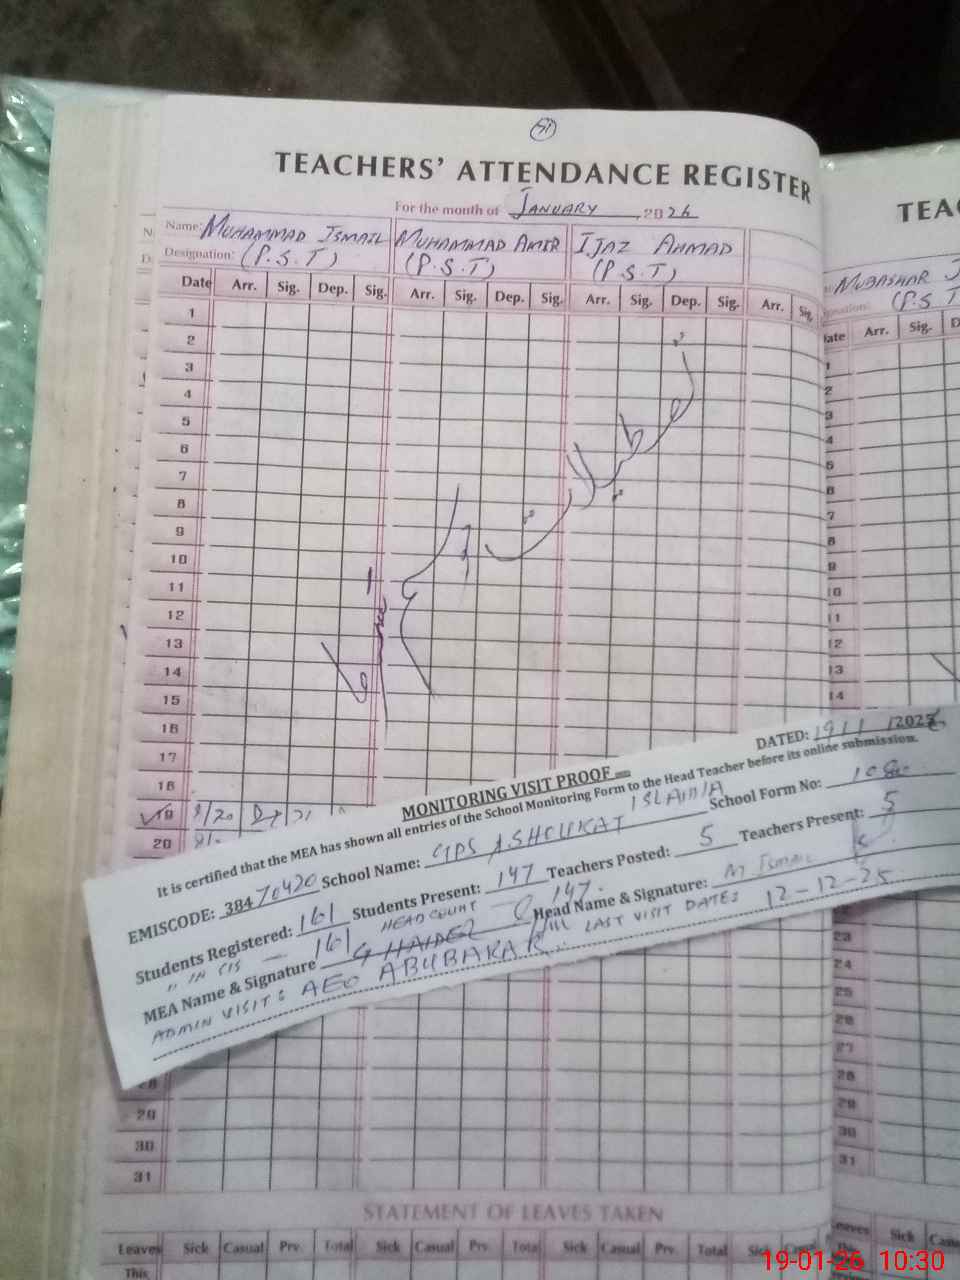 51
TEACHERS' ATTENDANCE REGISTER
For the month of JANUARY, 2026
Name: MUHAMMAD ISMAIL MUHAMMAD AMIR IJAZ AHMAD
Designation: (P.S.T) (P.S.T) (P.S.T)
Date Arr. Sig. Dep. Sig. Arr. Sig. Dep. Sig. Arr. Sig. Dep. Sig. Arr. Sig.
1
2
3
4
5
6
7
8
9
10
11
12
13
14
15
16
17
18
19
20
28
29
30
31
STATEMENT OF LEAVES TAKEN
Leaves Sick Casual Prv. Total Sick Casual Prv. Total Sick Casual Prv. Total Sick
This
TEAC
MUBASHAR
(P.S.T
Arr. Sig. D
1
2
3
4
5
6
7
8
9
10
11
12
13
14
23
24
25
26
27
28
29
30
31
Sick
MONITORING VISIT PROOF
DATED: 19/1/2026
It is certified that the MEA has shown all entries of the School Monitoring Form to the Head Teacher before its online submission.
EMISCODE: 38470420 School Name: GPS SHOUKAT ISLAMIA School Form No:
Students Registered: 161 Students Present: 147 Teachers Posted: 5 Teachers Present: 5
" IN CIS — 161 HEAD COUNT — 147.
MEA Name & Signature G HAIDER Head Name & Signature: M Ismail
ADMIN VISIT: AEO ABUBAKAR LAST VISIT DATE: 12-12-25
19-01-26 10:30